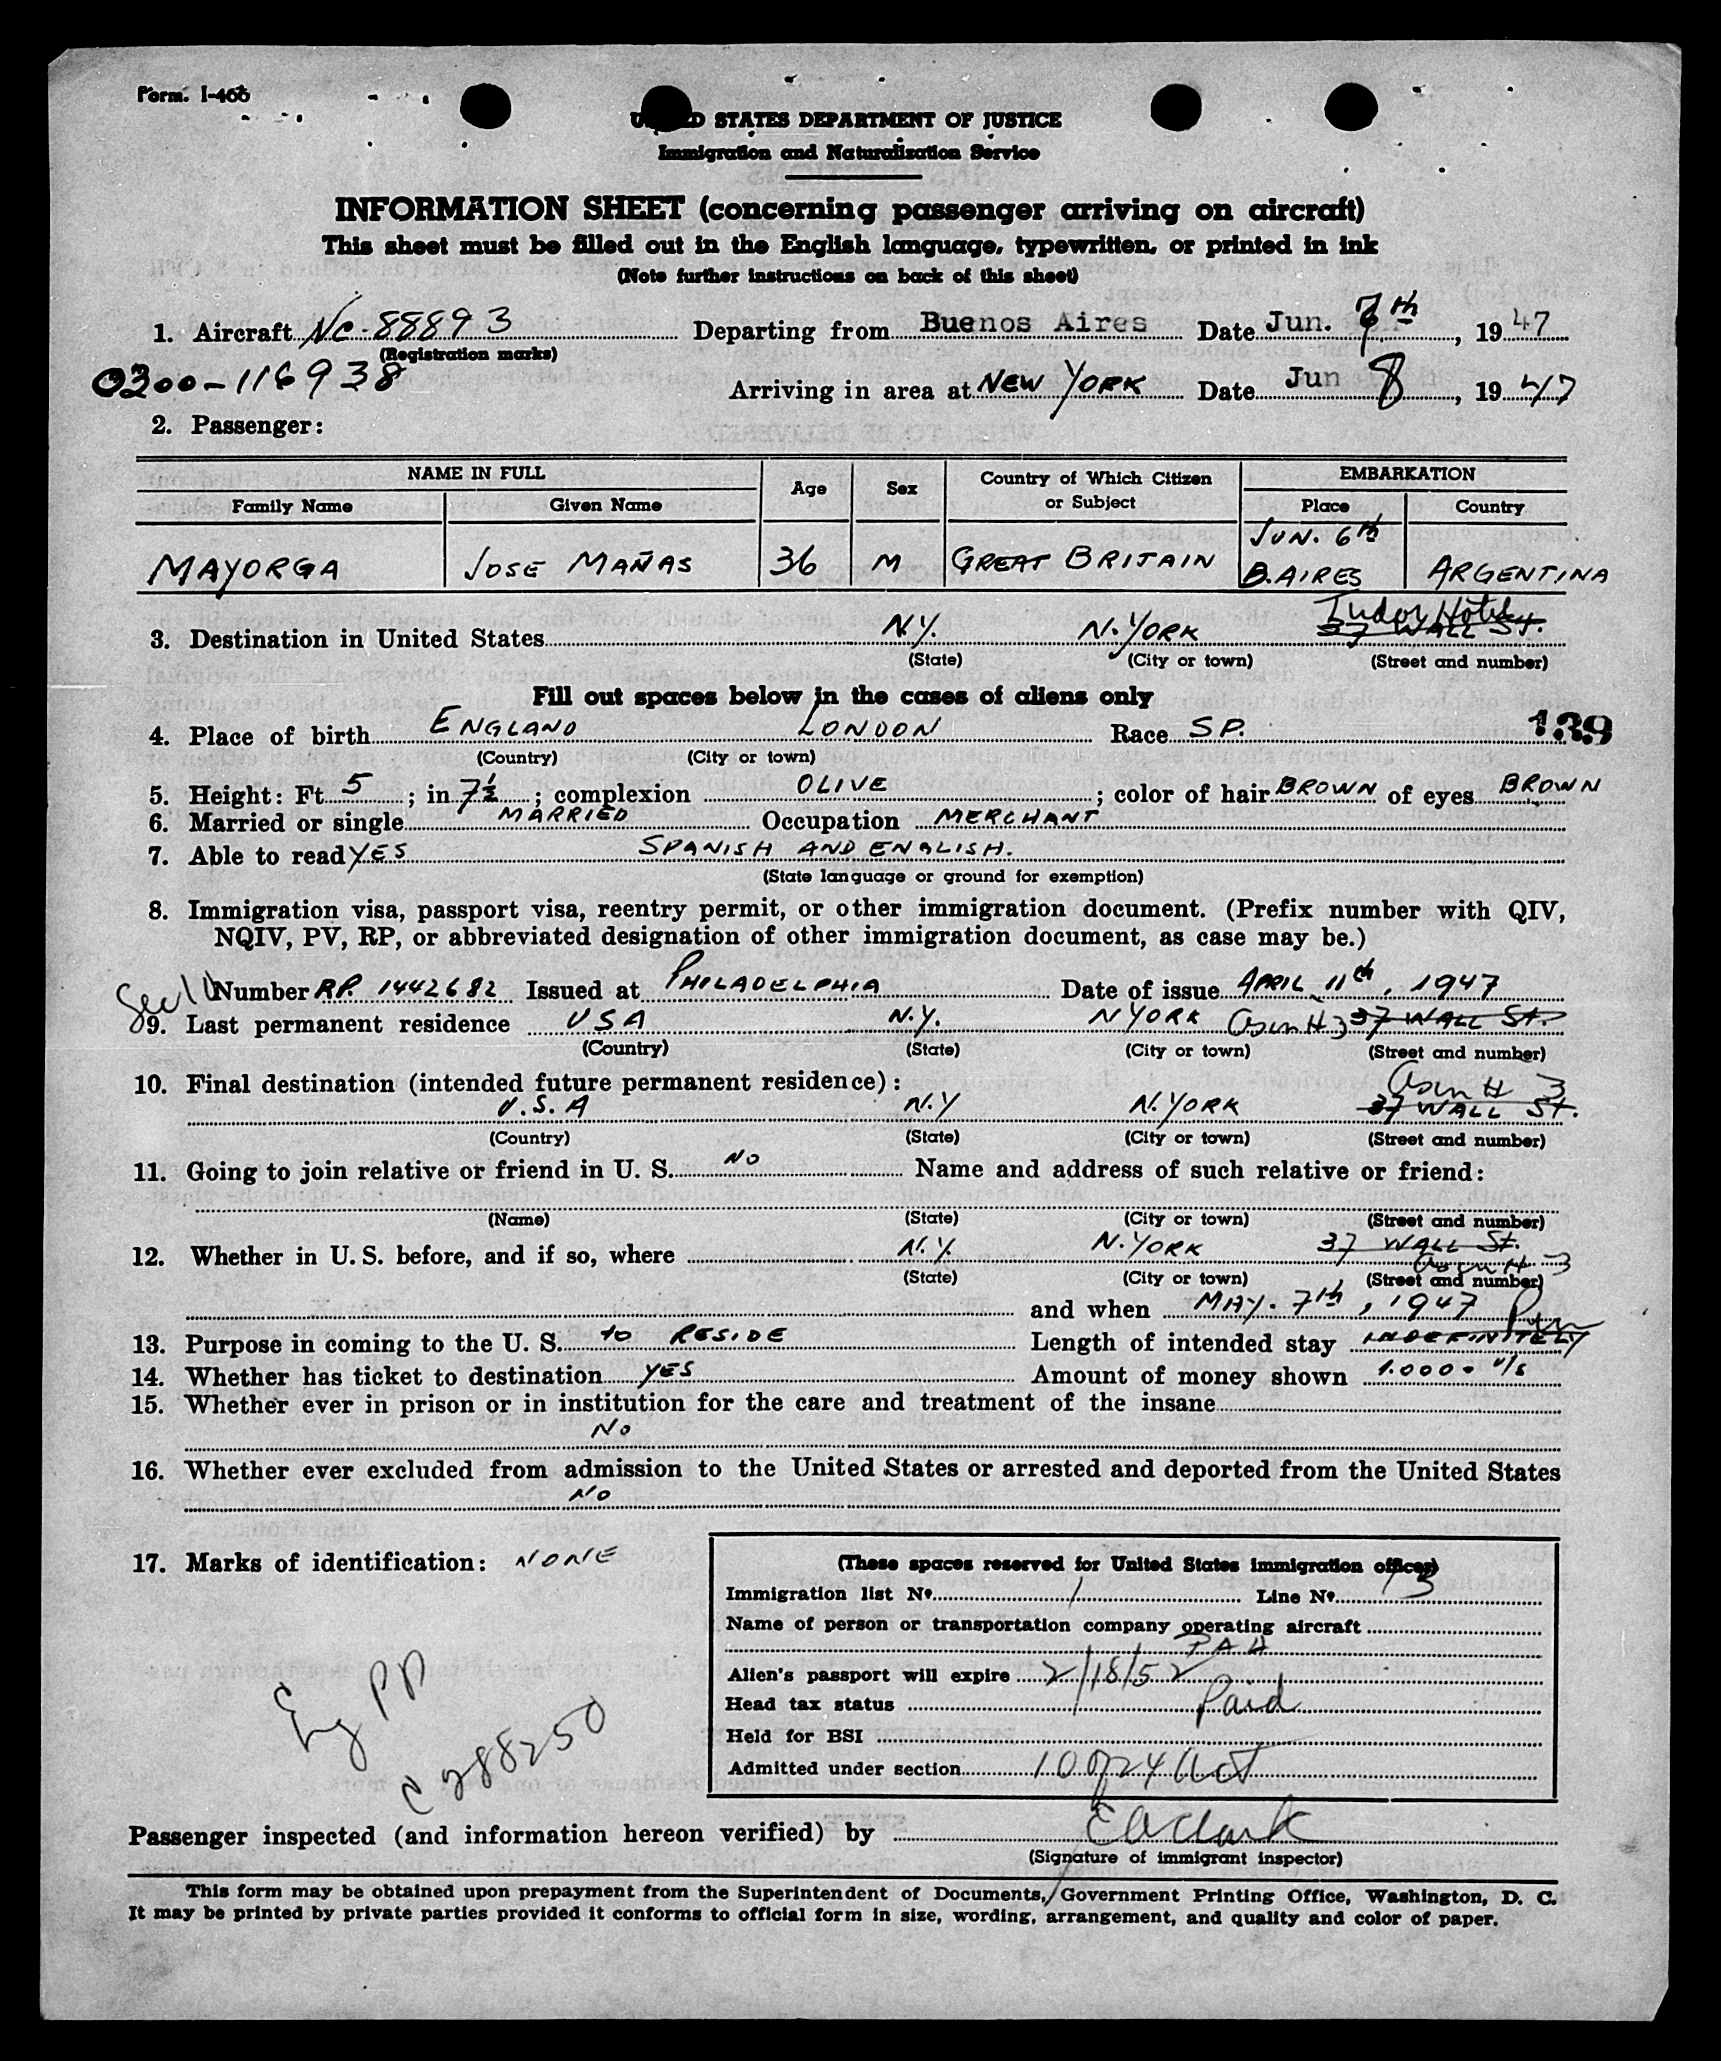 Form. I-466
UNITED STATES DEPARTMENT OF JUSTICE
Immigration and Naturalization Service
INFORMATION SHEET (concerning passenger arriving on aircraft)
This sheet must be filled out in the English language, typewritten, or printed in ink
(Note further instructions on back of this sheet)
1. Aircraft NC-88893 Departing from Buenos Aires Date Jun. 7th, 1947
(Registration marks)
0300-116938
Arriving in area at NEW YORK Date Jun 8, 1947
2. Passenger:
NAME IN FULL Age Sex Country of Which Citizen or Subject EMBARKATION
Family Name Given Name Place Country
JUN. 6th
MAYORGA JOSE MAÑAS 36 M GREAT BRITAIN B.AIRES ARGENTINA
Tudor Hotel
3. Destination in United States N.Y. N.YORK 37 WALL St.
(State) (City or town) (Street and number)
Fill out spaces below in the cases of aliens only
139
4. Place of birth ENGLAND LONDON Race SP.
(Country) (City or town)
5. Height: Ft. 5; in. 7½; complexion OLIVE; color of hair BROWN of eyes BROWN
6. Married or single MARRIED Occupation MERCHANT
7. Able to read YES SPANISH AND ENGLISH.
(State language or ground for exemption)
8. Immigration visa, passport visa, reentry permit, or other immigration document. (Prefix number with QIV,
NQIV, PV, RP, or abbreviated designation of other immigration document, as case may be.)
Number RP. 1442682 Issued at PHILADELPHIA Date of issue APRIL 11th, 1947
9. Last permanent residence USA N.Y. N YORK as in # 3 37 WALL St.
(Country) (State) (City or town) (Street and number)
10. Final destination (intended future permanent residence):
as in # 3
U.S.A N.Y N.YORK 37 WALL St.
(Country) (State) (City or town) (Street and number)
11. Going to join relative or friend in U. S. NO Name and address of such relative or friend:
(Name) (State) (City or town) (Street and number)
12. Whether in U. S. before, and if so, where N.Y. N.YORK 37 WALL St.
as in # 3
(State) (City or town) (Street and number)
and when MAY. 7th, 1947
13. Purpose in coming to the U. S. to RESIDE Length of intended stay INDEFINITELY
14. Whether has ticket to destination YES Amount of money shown 1.000. u/s
15. Whether ever in prison or in institution for the care and treatment of the insane
NO
16. Whether ever excluded from admission to the United States or arrested and deported from the United States
NO
17. Marks of identification: NONE
(These spaces reserved for United States immigration officer)
Immigration list No. 1 Line No. 13
Name of person or transportation company operating aircraft
PAA
Alien's passport will expire 2/18/52
Head tax status Paid
Held for BSI
Admitted under section
Eng PP
C 288250
Passenger inspected (and information hereon verified) by EA Clark
(Signature of immigrant inspector)
This form may be obtained upon prepayment from the Superintendent of Documents, Government Printing Office, Washington, D. C.
It may be printed by private parties provided it conforms to official form in size, wording, arrangement, and quality and color of paper.